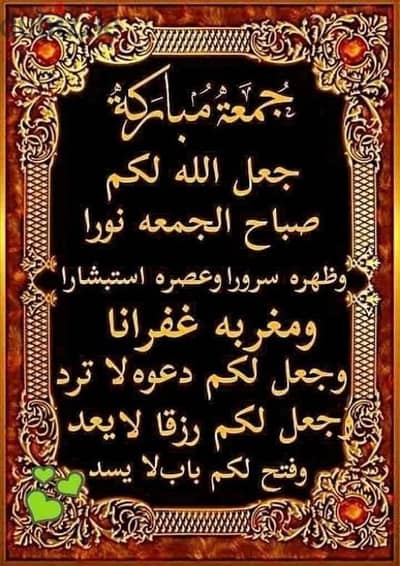 جمعة مباركة
جعل الله لكم
صباح الجمعه نورا
وظهره سرورا وعصره استبشارا
ومغربه غفرانا
وجعل لكم دعوه لا ترد
وجعل لكم رزقا لا يعد
وفتح لكم باب لا يسد